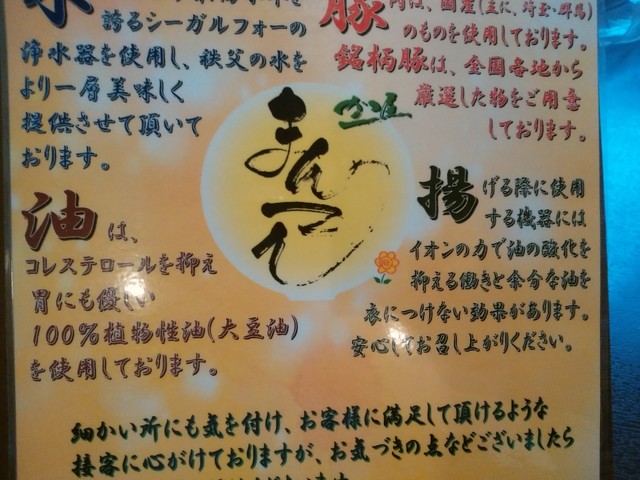 水
誇るシーガルフォーの
浄水器を使用し、秩父の水を
より一層美味しく
提供させて頂いて
おります。
豚
肉は、国産(主に、埼玉・群馬)
のものを使用しております。
銘柄豚は、全国各地から
厳選した物をご用意
しております。
油は、
コレステロールを抑え
胃にも優しい
100%植物性油(大豆油)
を使用しております。
揚げる際に使用
する機器には
イオンの力で油の酸化を
抑える働きと余分な油を
衣につけない効果があります。
安心してお召し上がりください。
細かい所にも気を付け、お客様に満足して頂けるような
接客に心がけておりますが、お気づきの点などございましたら